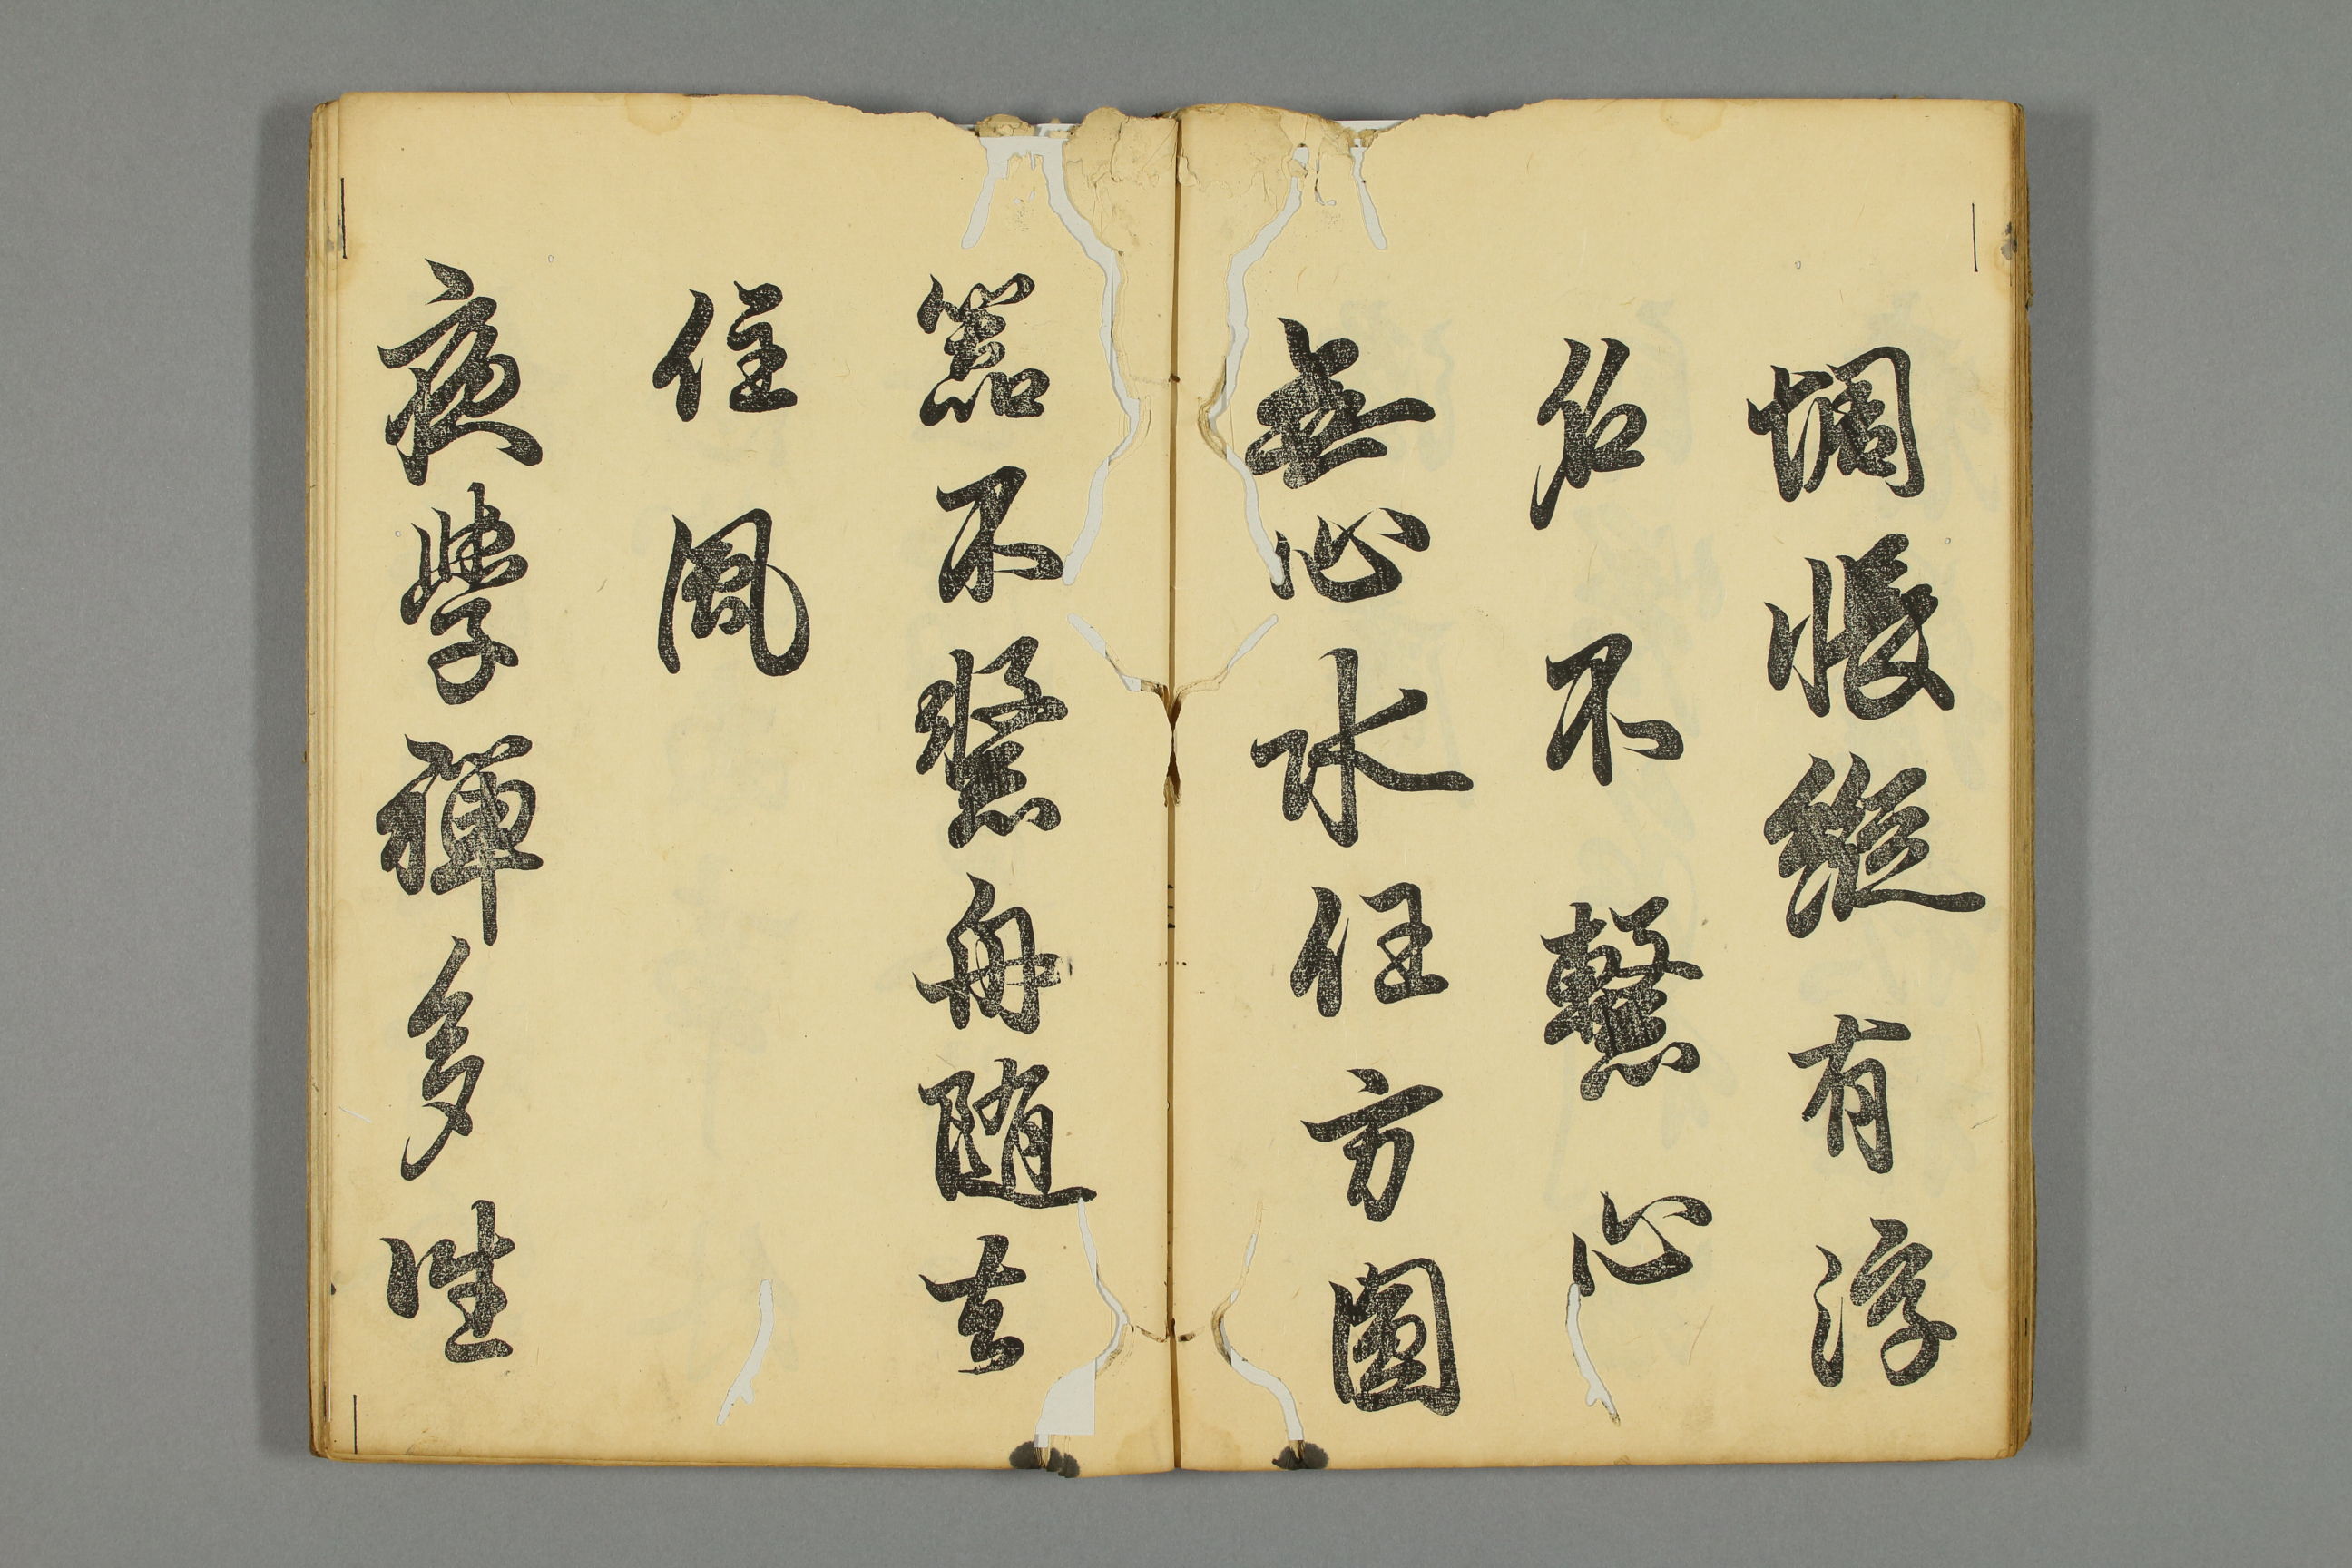 惆悵縱有浮
名不繫心
無心水任方圓
器不繫舟隨去
住風
夜學禪多坐